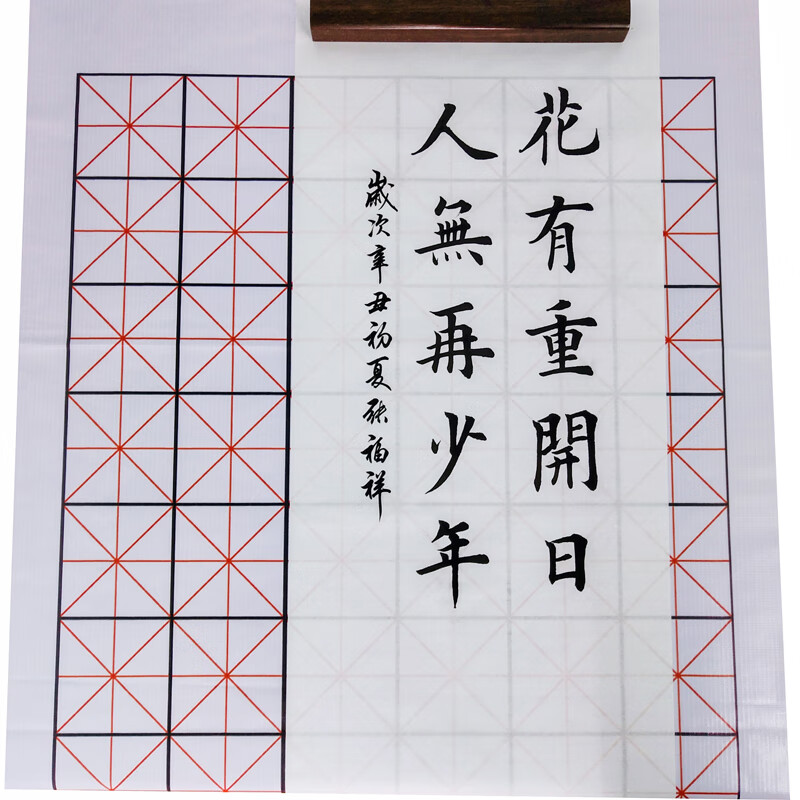 花有重開日
人無再少年
歲次辛丑初夏張福祥